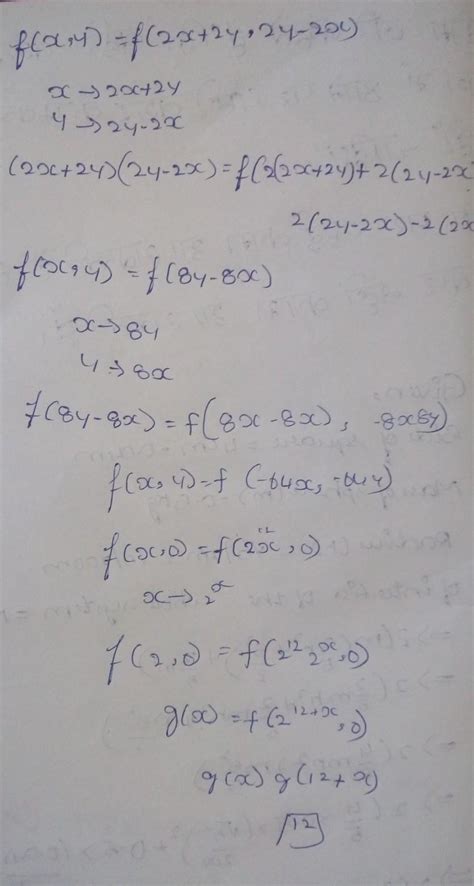 f(x,y) = f(2x+2y, 2y-2x)
x → 2x+2y
y → 2y-2x
(2x+2y)(2y-2x) = f(2(2x+2y)+2(2y-2x
2(2y-2x)-2(2x
f(x,y) = f(8y-8x)
x → 8y
y → 8x
f(8y-8x) = f(8x-8x), -8x8y)
f(x,y) = f(-64x, -64y)
f(x,0) = f(2^12 x, 0)
x → 2^x
f(2,0) = f(2^12 2^x, 0)
g(x) = f(2^12+x, 0)
g(x) g(12+x)
12